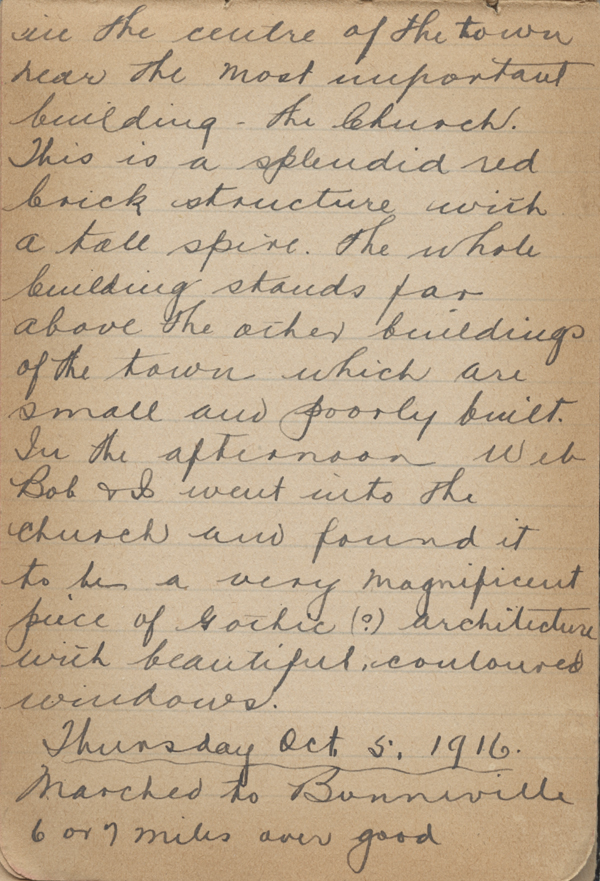 in the centre of the town
near the most important
building - the Church.
This is a splendid red
brick structure with
a tall spire. The whole
building stands far
above the other buildings
of the town which are
small and poorly built.
In the afternoon Web
Bob & I went into the
church and found it
to be a very magnificent
piece of Gothic (?) architecture
with beautiful, couloured
windows.
Thursday Oct. 5, 1916.
Marched to Bonneville
6 or 7 miles over good